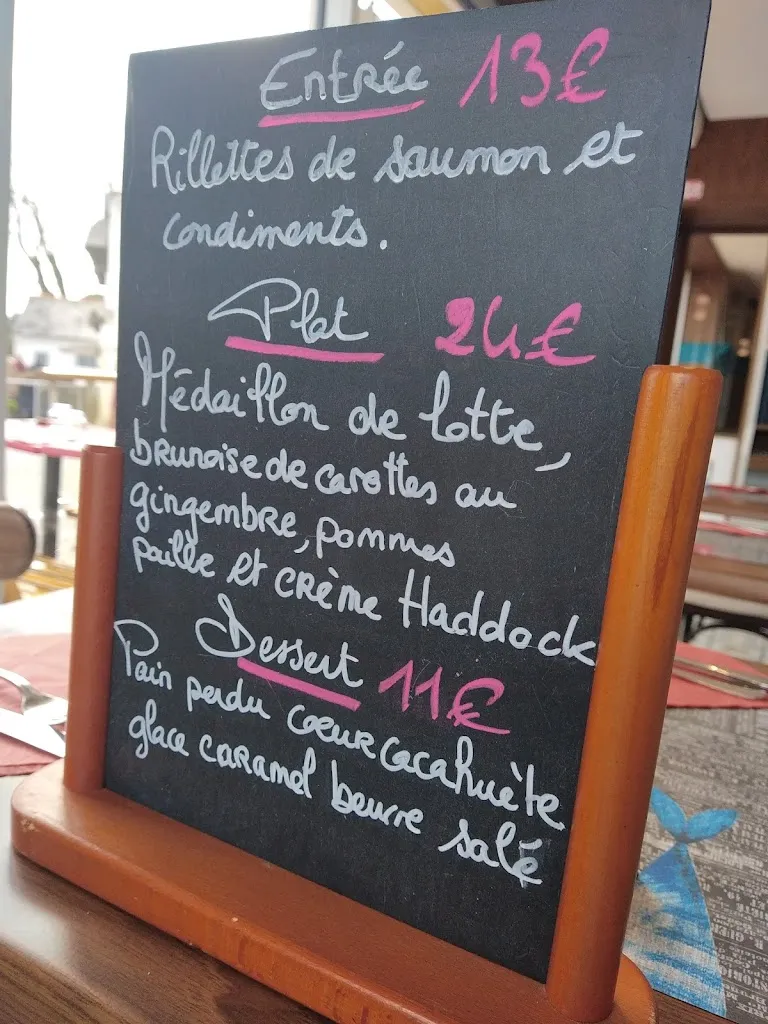 Entrée 13€
Rillettes de saumon et
condiments.
Plat 24€
Médaillon de lotte,
brunoise de carottes au
gingembre, pommes
paille et crème Haddock
Dessert 11€
Pain perdu coeur cacahuète
glace caramel beurre salé